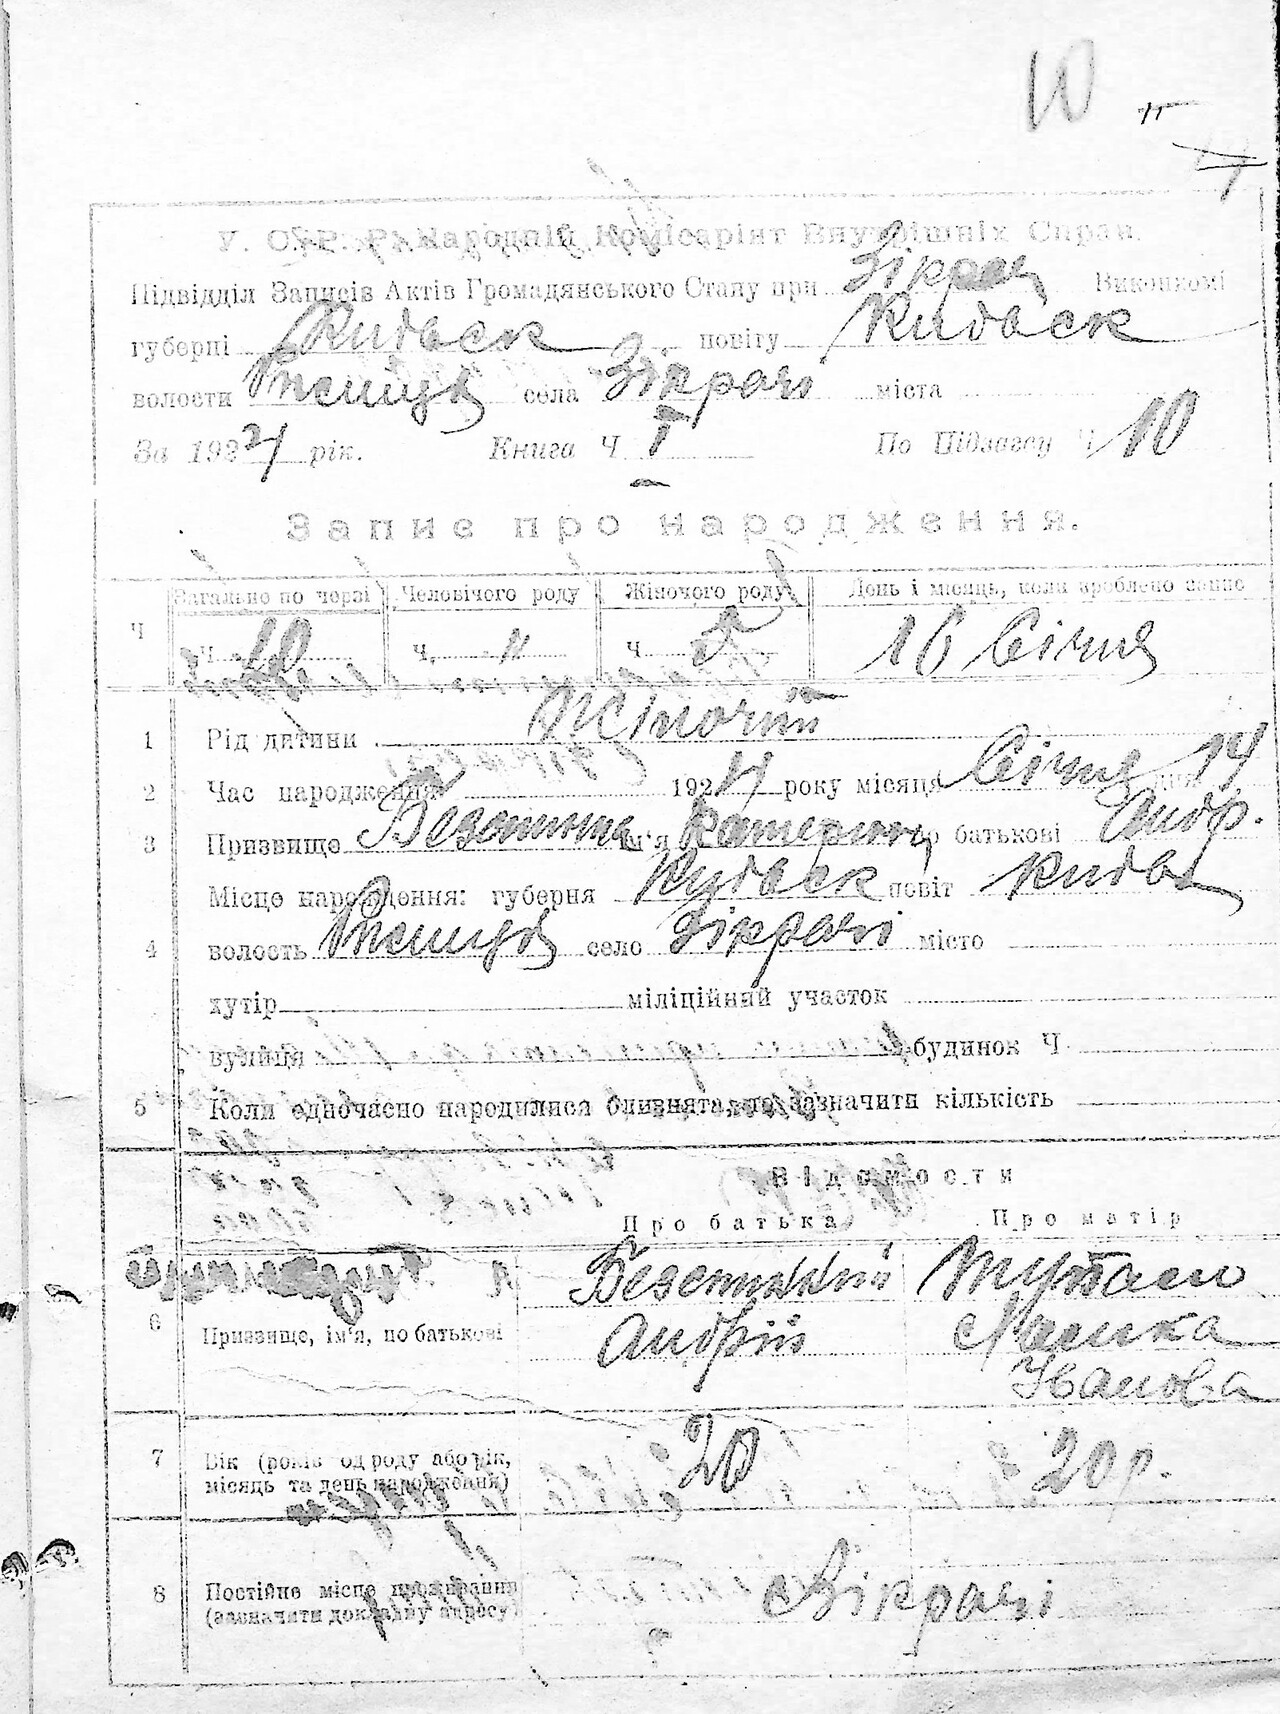 10
У. С. Р. Р. Народній Комісаріят Внутрішніх Справ.
Підвідділ Записів Актів Громадянського Стану при Зікрач Виконкомі
губерні Київськ повіту Київськ
волости Ржищів села Зікрачі міста
За 1924 рік. Книга Ч I По Підзагсу Ч 10
Запис про народження.
Загально по черзі Человічого роду Жіночого роду День і місяць, коли зроблено запис
Ч Ч 10 Ч. " Ч 5 16 Січня
1 Рід дитини Жіночій
2 Час народження 1924 року місяця Січня дня 14
3 Призвище ім'я Катерина по батькові Андр.
Місце народження: губерня Київськ повіт Київс
4 волость Ржищів село Зікрачі місто
хутір міліційний участок
вулиця будинок Ч
5 Коли одночасно народилися близнята, то зазначити кількість
Відомости
Про батька Про матір
6 Призвище, ім'я, по батькові
Андрій
Іванова
7 Вік (років од роду або рік, місяць та день народження) 20 20 р.
8 Постійне місце проживання (зазначити докладну адресу) Зікрачі